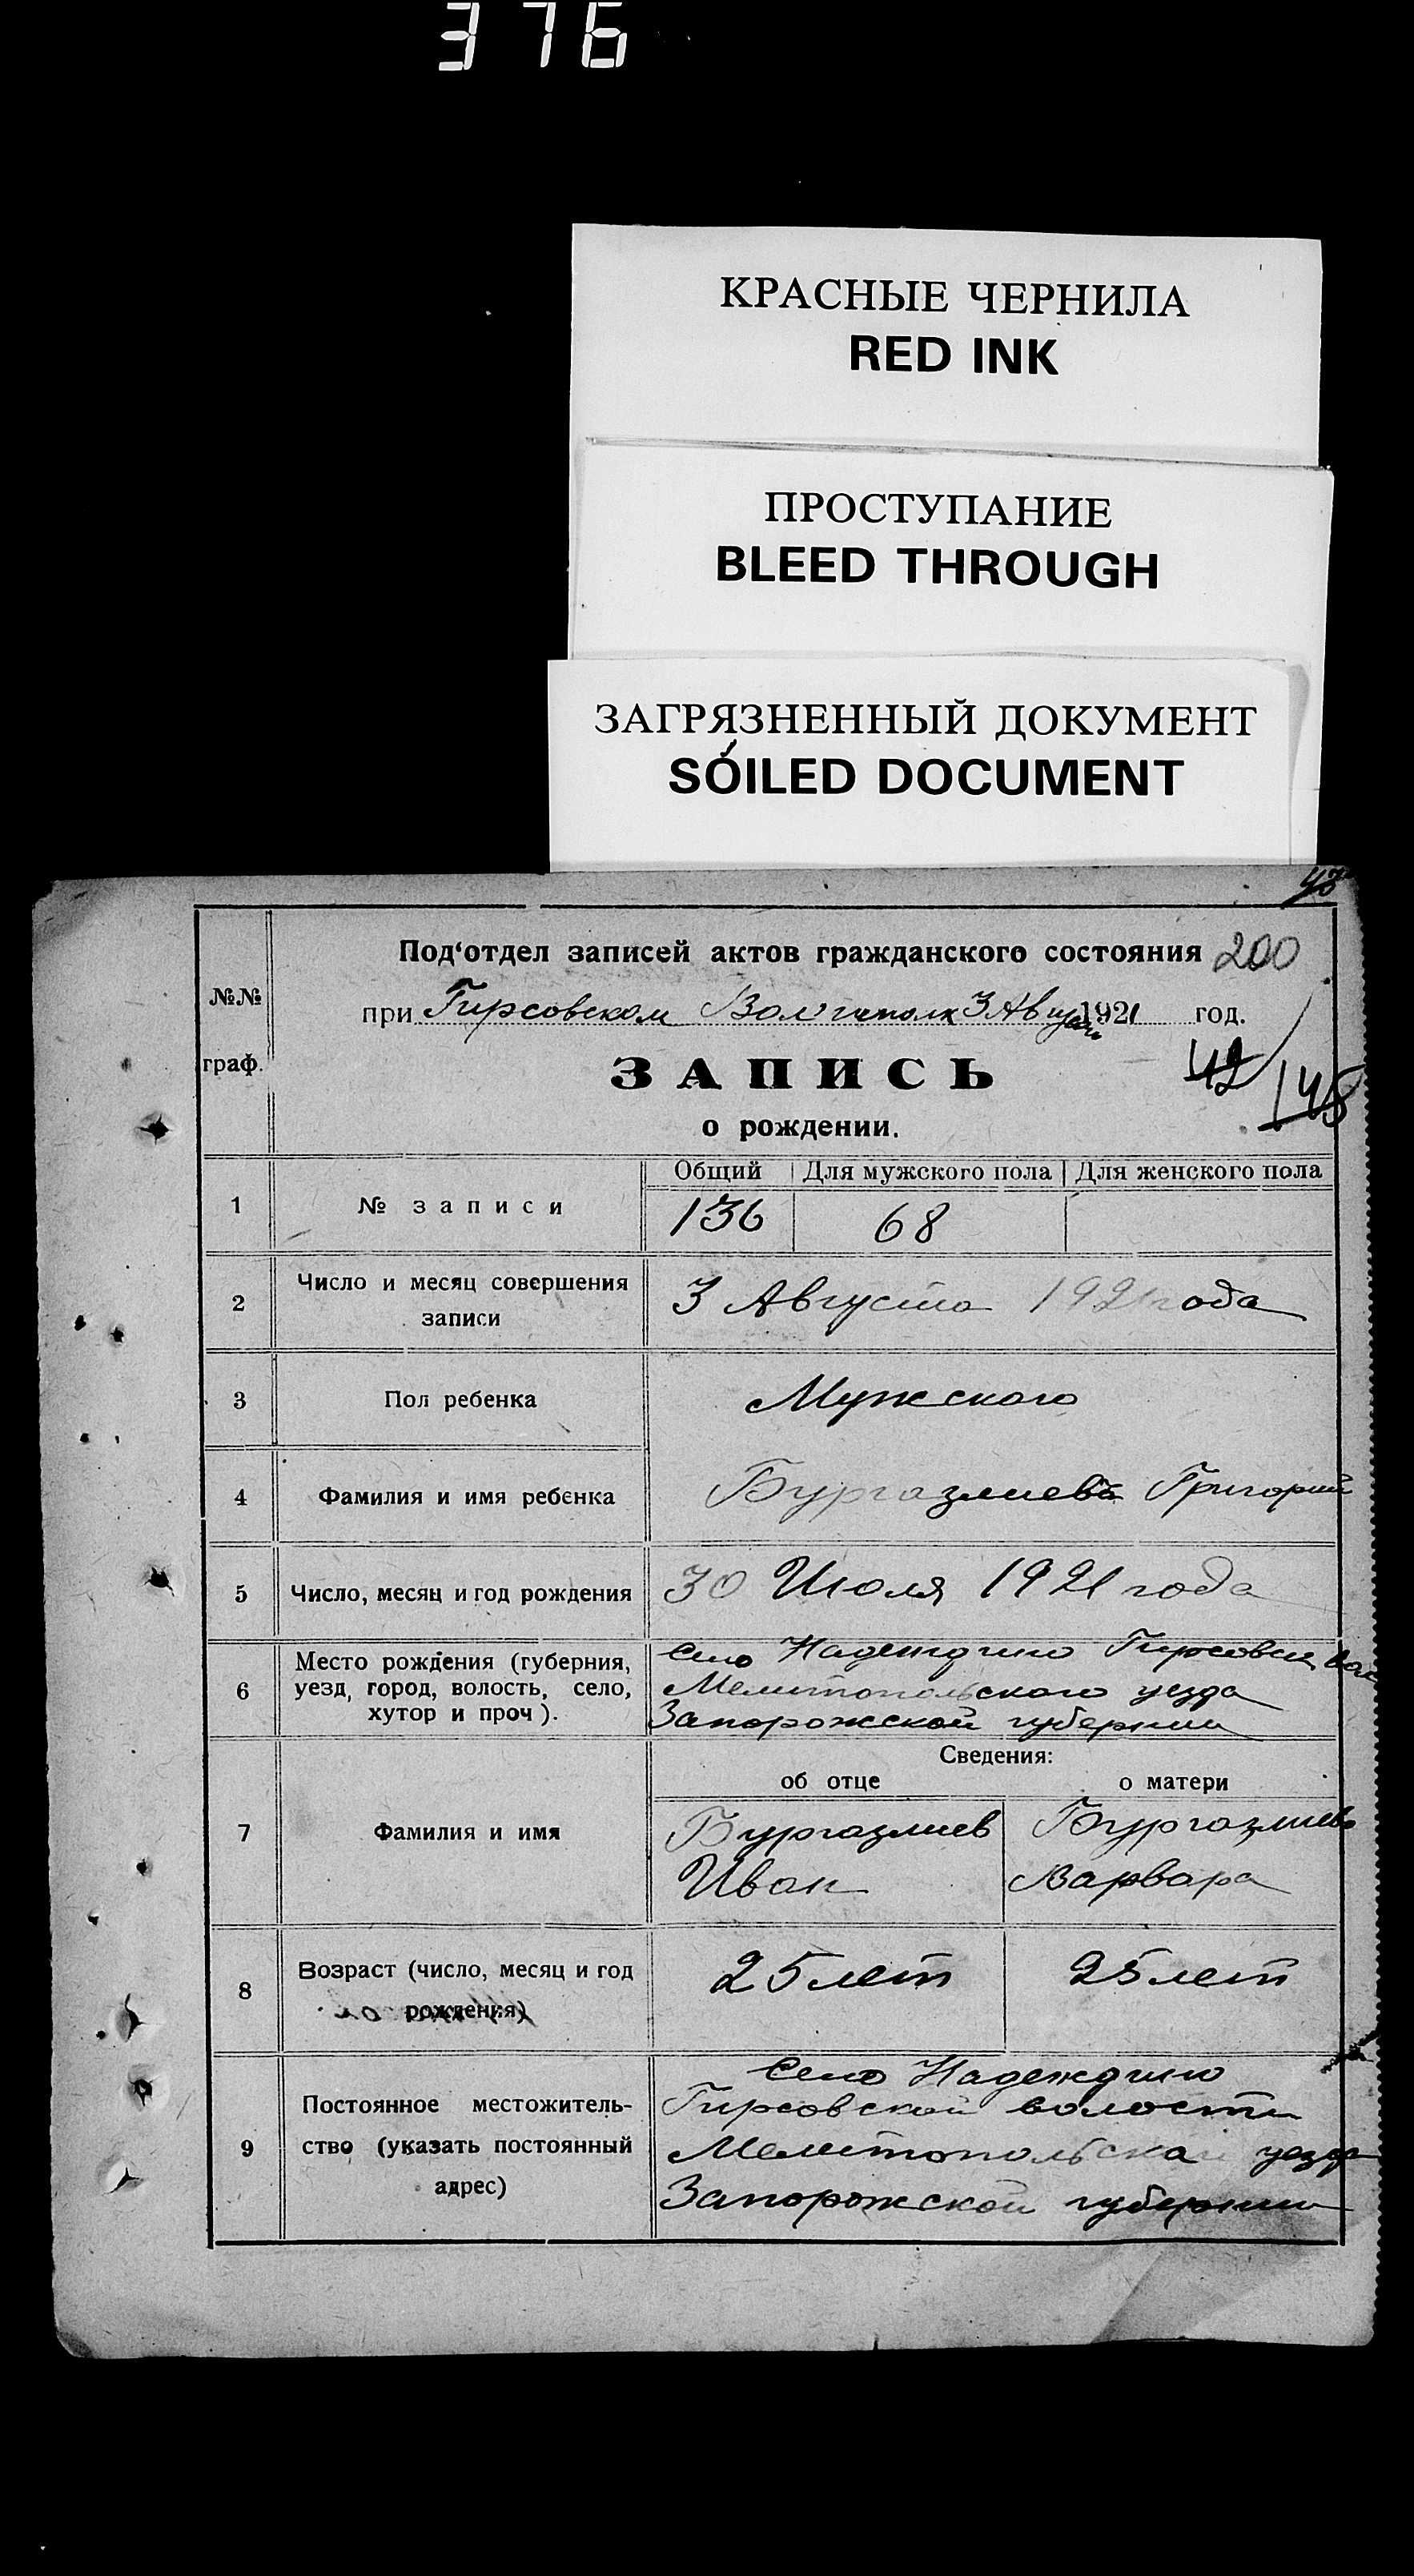 376
КРАСНЫЕ ЧЕРНИЛА
RED INK
ПРОСТУПАНИЕ
BLEED THROUGH
ЗАГРЯЗНЕННЫЙ ДОКУМЕНТ
SOILED DOCUMENT
№№
граф.
Под‘отдел записей актов гражданского состояния 200
при Гирсовском 3 Августа 1921 год.
ЗАПИСЬ
42
148
о рождении.
Общий Для мужского пола Для женского пола
1 № записи 136 68
2 Число и месяц совершения
записи
3 Августа 1921 года
3 Пол ребенка Мужского
4 Фамилия и имя ребенка Бургазлиев Григорий
5 Число, месяц и год рождения 30 Июля 1921 года
6 Место рождения (губерния,
уезд, город, волость, село,
хутор и проч).
Село Надеждино Гирсовск вол
Мелитопольского уезда
Запорожской губернии
Сведения:
об отце о матери
7 Фамилия и имя
Бургазлиев
Иван
Бургазлиева
Варвара
8 Возраст (число, месяц и год
рождения)
25 лет 25 лет
9 Постоянное местожитель-
ство (указать постоянный
адрес)
Село Надеждино
Гирсовской волости
Мелитопольска уезда
Запорожской губернии